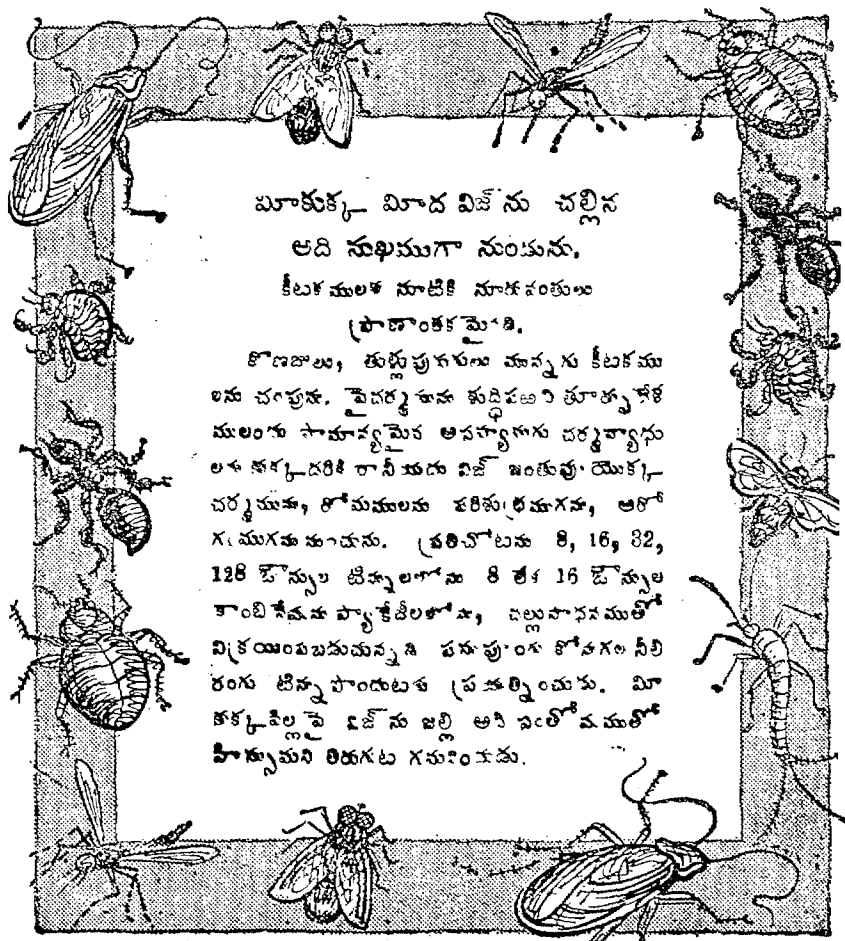 మీకుక్క మీద విజ్ ను చల్లిన
అది సుఖముగా నుండును.
కీటకములకు నూటికి నూరువంతులు
ప్రాణాంతకమైనది.
కొణజులు, తుళ్లుపురుగులు మున్నగు కీటకము
లను చంపును. పైచర్మమును శుద్ధిపఱచి తూర్పుదేశ
ములందు సామాన్యమైన అసహ్యమగు చర్మవ్యాధు
లను కుక్కదరికి రానీయదు విజ్ జంతువు యొక్క
చర్మమును, రోమములను పరిశుభ్రముగను, ఆరో
గ్యముగను నుంచును. ప్రతిచోటను 8, 16, 32,
128 ఔన్సుల టిన్నులలోను 8 లేక 16 ఔన్సుల
కాంబినేషను ప్యాకేజీలలోను, చల్లుసాధనముతో
విక్రయింపబడుచున్నది పసుపురంగు కోనగల నీలి
రంగు టిన్న పొందుటకు ప్రయత్నించుడు. మీ
కుక్కపిల్లపై విజ్ ను జల్లి అది సంతోషముతో
హిస్సుమని తిరుగుట గనుపించుడు.